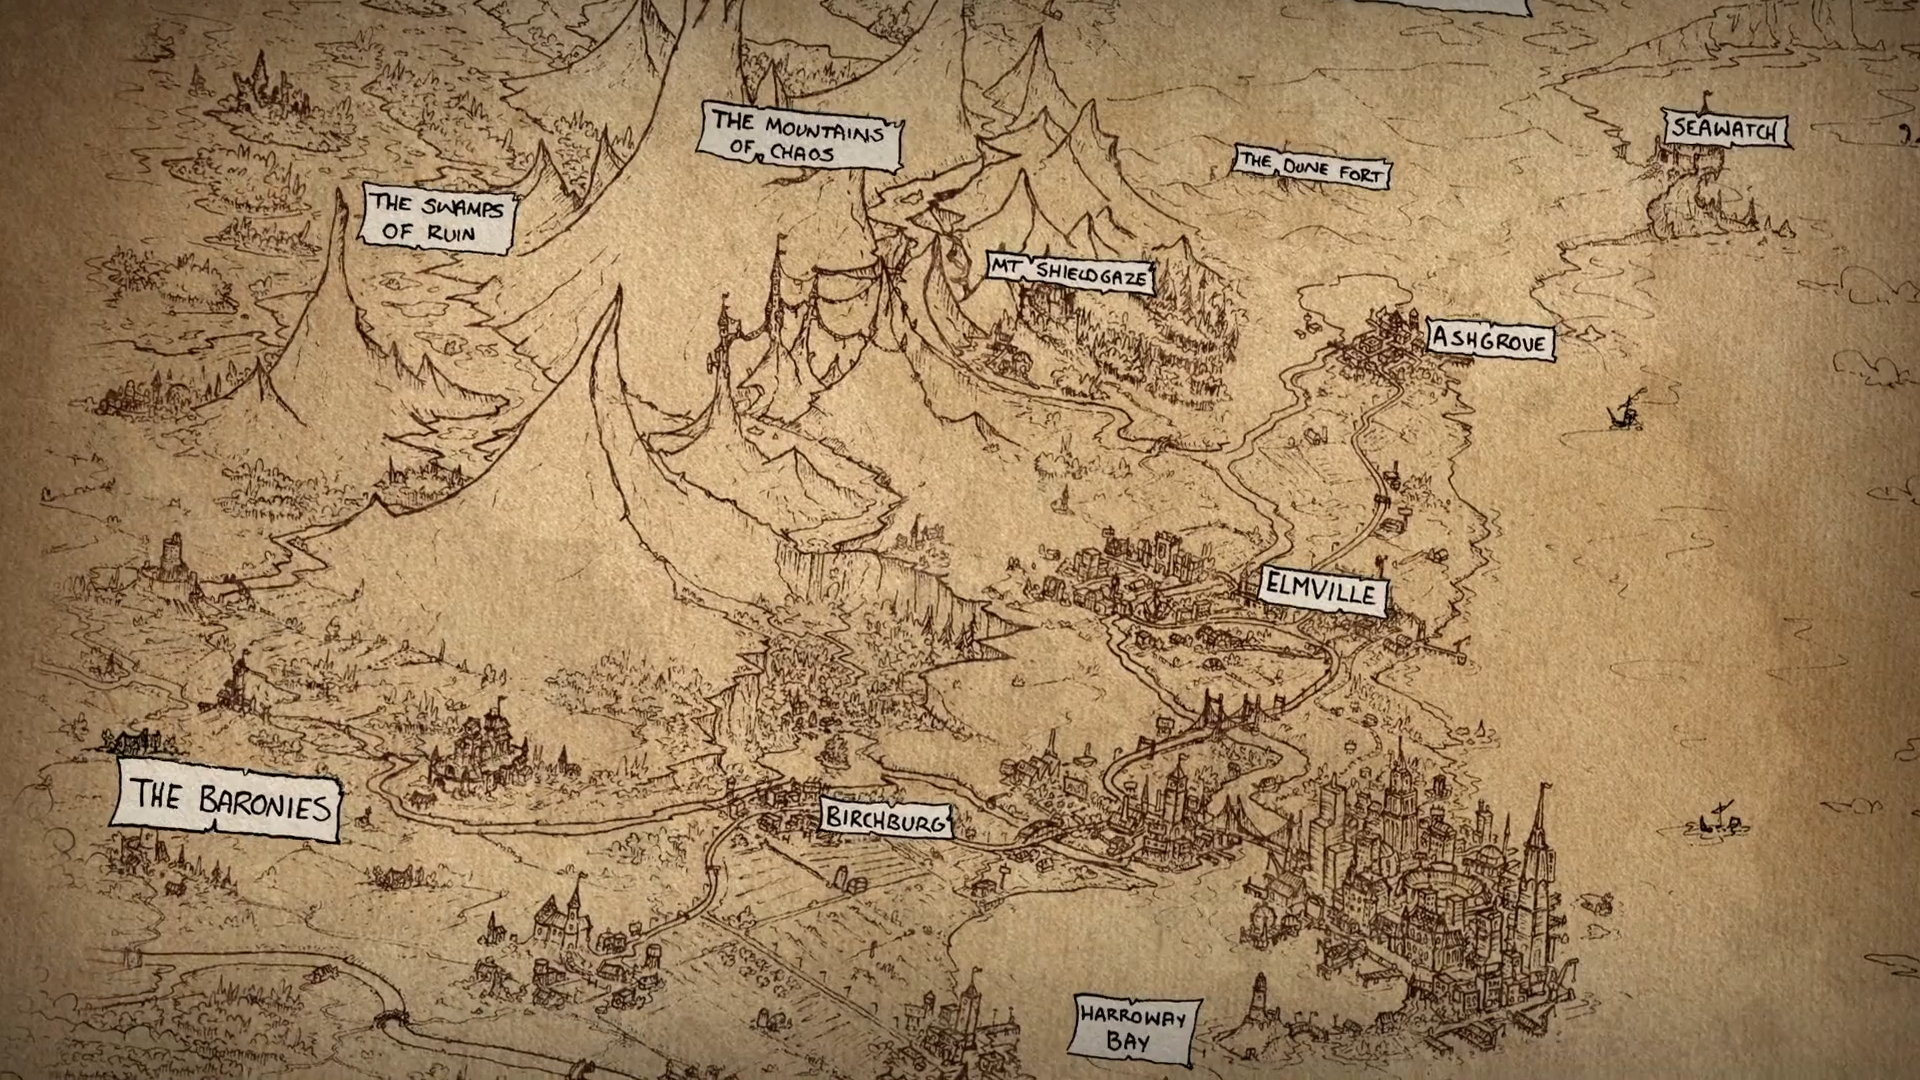 THE MOUNTAINS
OF CHAOS
SEAWATCH
THE DUNE FORT
THE SWAMPS
OF RUIN
MT SHIELDGAZE
ASHGROVE
ELMVILLE
THE BARONIES
BIRCHBURG
HARROWAY
BAY